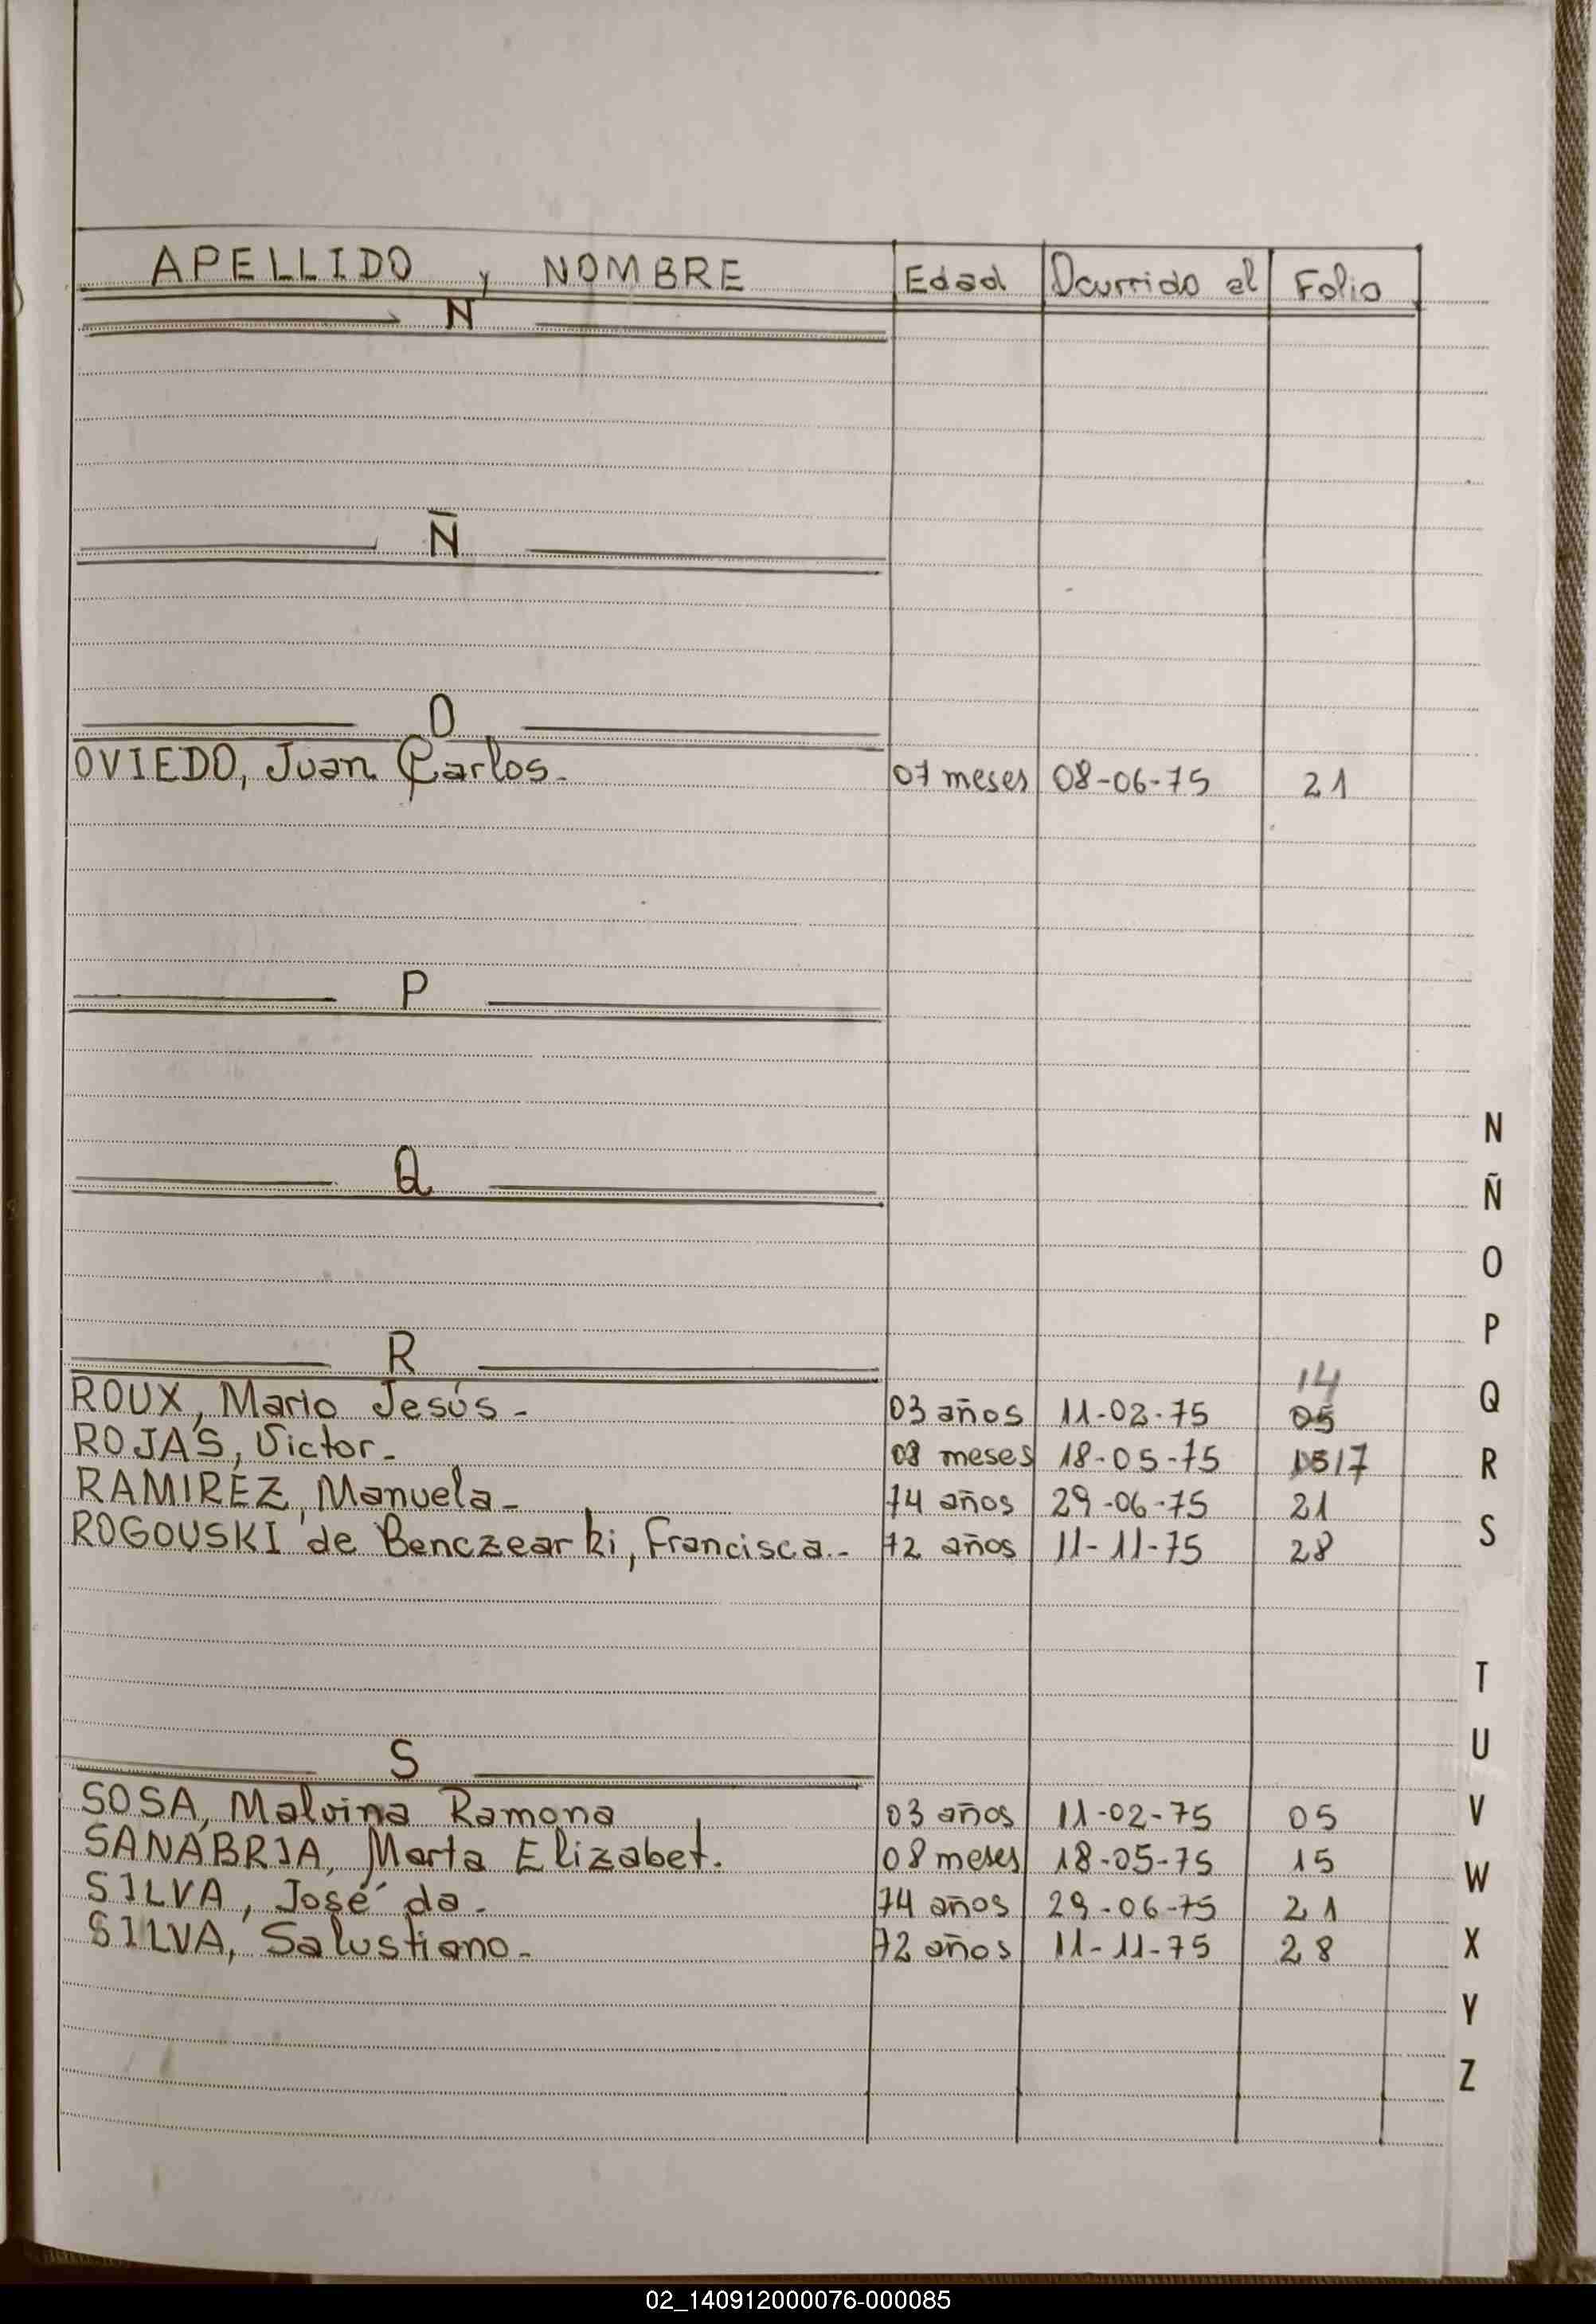 APELLIDO y NOMBRE Edad Ocurrido el Folio
N
Ñ
O
OVIEDO, Juan Carlos.- 07 meses 08-06-75 21
P
Q
R
14
ROUX, Mario Jesús.- 03 años 11-02-75 05
ROJAS, Victor.- 08 meses 18-05-75 1517
RAMIREZ, Manuela.- 74 años 29-06-75 21
ROGOUSKI de Benczearki, Francisca.- 72 años 11-11-75 28
S
SOSA, Malvina Ramona 03 años 11-02-75 05
SANABRIA, Marta Elizabet. 08 meses 18-05-75 15
SILVA, José da.- 74 años 29-06-75 21
SILVA, Salustiano.- 72 años 11-11-75 28
N
Ñ
O
P
Q
R
S
T
U
V
W
X
Y
Z
02_140912000076-000085